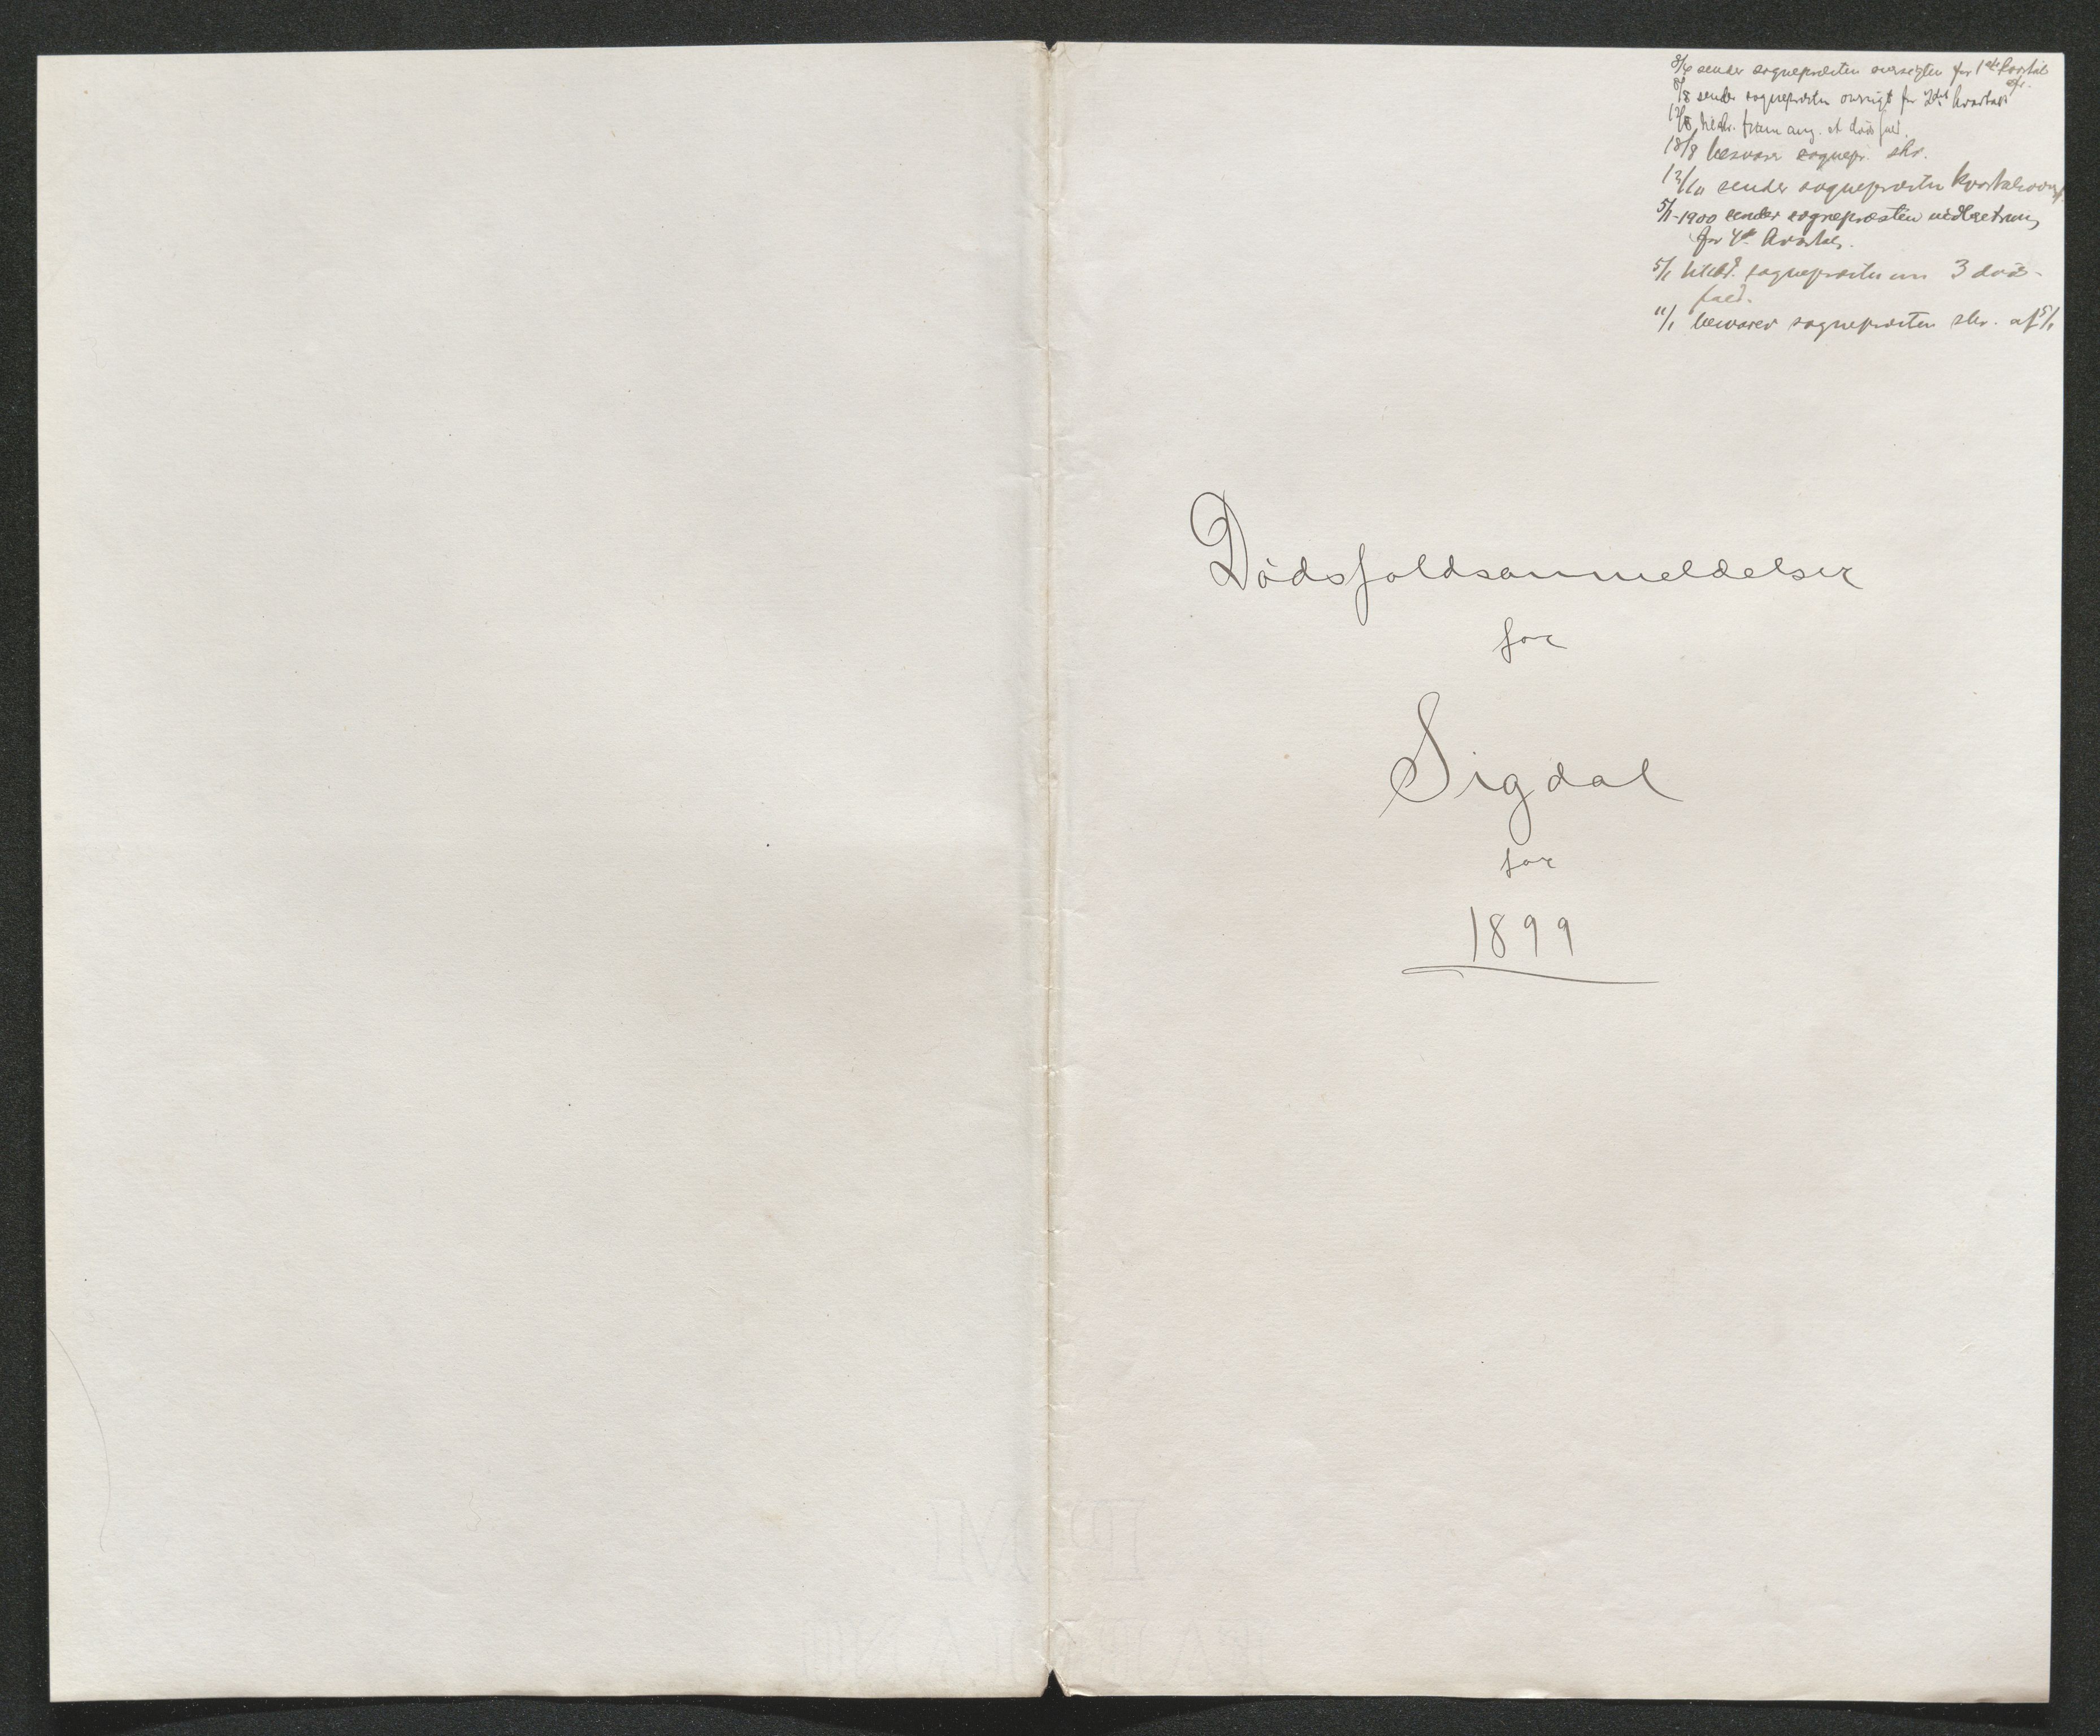 8/6 sender sognepræsten oversigten for 1ste kvartal
8/8 sender sognepræsten oversigt for 2det kvartal
12/8 tilskr. ham ang. et dødsfald.
18/8 besvarer sognepr. skr.
12/10 sender sognepræsten kvartalsovers.
5/1-1900 sender sognepræsten
for 4de kvartal.
5/1 tilskr. sognepræsten om 3 døds-
fald.
11/1 besvarer sognepræsten skr. af 5/1
Dødsfaldsanmeldelser
for
Sigdal
for
1899